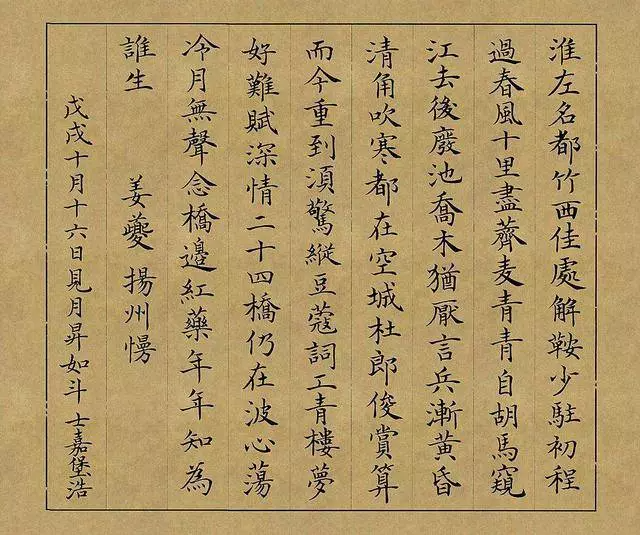 淮左名都竹西佳處解鞍少駐初程
過春風十里盡薺麦青青自胡馬窺
江去後廢池喬木猶厭言兵漸黃昏
清角吹寒都在空城杜郎俊賞算
而今重到湏驚縱豆蔻詞工青樓夢
好難賦深情二十四橋仍在波心蕩
冷月無聲念橋邊紅藥年年知為
誰生 姜夔 揚州慢
戊戌十月十六日見月昇如斗 士嘉堡浩